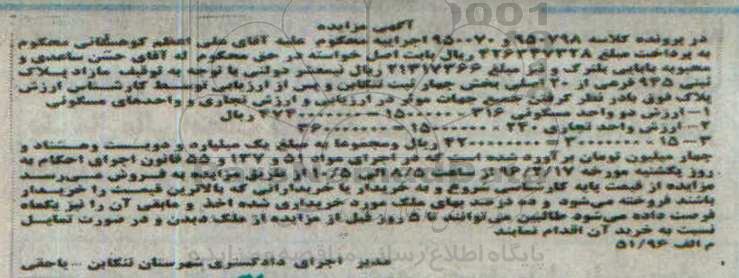 آگهی مزایده
در پرونده کلاسه ۹۵۰۷۹۸ و ۹۵۰۰۷۰ اجراییه محکوم علیه آقای علی اعظم کوهستانی محکوم
به پرداخت مبلغ ۳۲۶۲۳۷۳۲۸ ریال بابت اصل خواسته در حق محکوم له آقای حسن ساعدی و
محبوبه بابایی بلترک و نیز مبلغ ۲۱۳۱۷۳۶۶ ریال نیمعشر دولتی با توجه به توقیف مازاد پلاک
ثبتی ۹۳۵ فرعی از اصلی بخش چهار ثبت تنکابن و پس از ارزیابی توسط کارشناس ارزش
پلاک فوق بادر نظر گرفتن جمیع جهات موثر در ارزیابی و ارزش تجاری و واحدهای مسکونی
۱- ارزش دو واحد مسکونی ۳۱۶ ریال
۲- ارزش واحد تجاری ۲۴۰
۳- ریال ومجموعا به مبلغ یک میلیارد و دویست وهشتاد و
چهار میلیون تومان برآورده شده است که در اجرای مواد ۵۱ و ۱۳۷ و ۵۵ قانون اجرای احکام به
روز یکشنبه مورخه از ساعت از طریق مزایده به فروش می رسد
مزایده از قیمت پایه کارشناسی شروع و به خریدار یا خریدارانی که بالاترین قیمت را خریدار
باشند فروخته می‌شود و ده درصد بهای ملک مورد خریداری شده اخذ و مابقی آن را نیز یکماه
فرصت داده می‌شود طالبین می‌توانند تا ۵ روز قبل از مزایده از ملک دیدن و در صورت تمایل
نسبت به خرید آن اقدام نمایند
م الف ۵۱/۹۶
مدیر اجرای دادگستری شهرستان تنکابن - یاحقی
پایگاه اطلاع رسانی